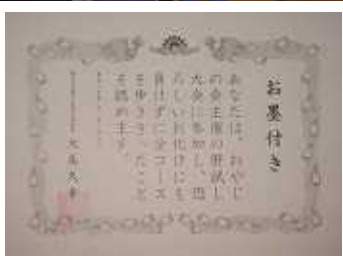 お墨付き
あなたは、おやじ
の会主催の肝試し
大会に参加し、恐
ろしいお化けにも
負けずに全コース
を歩ききったこと
を認めます。